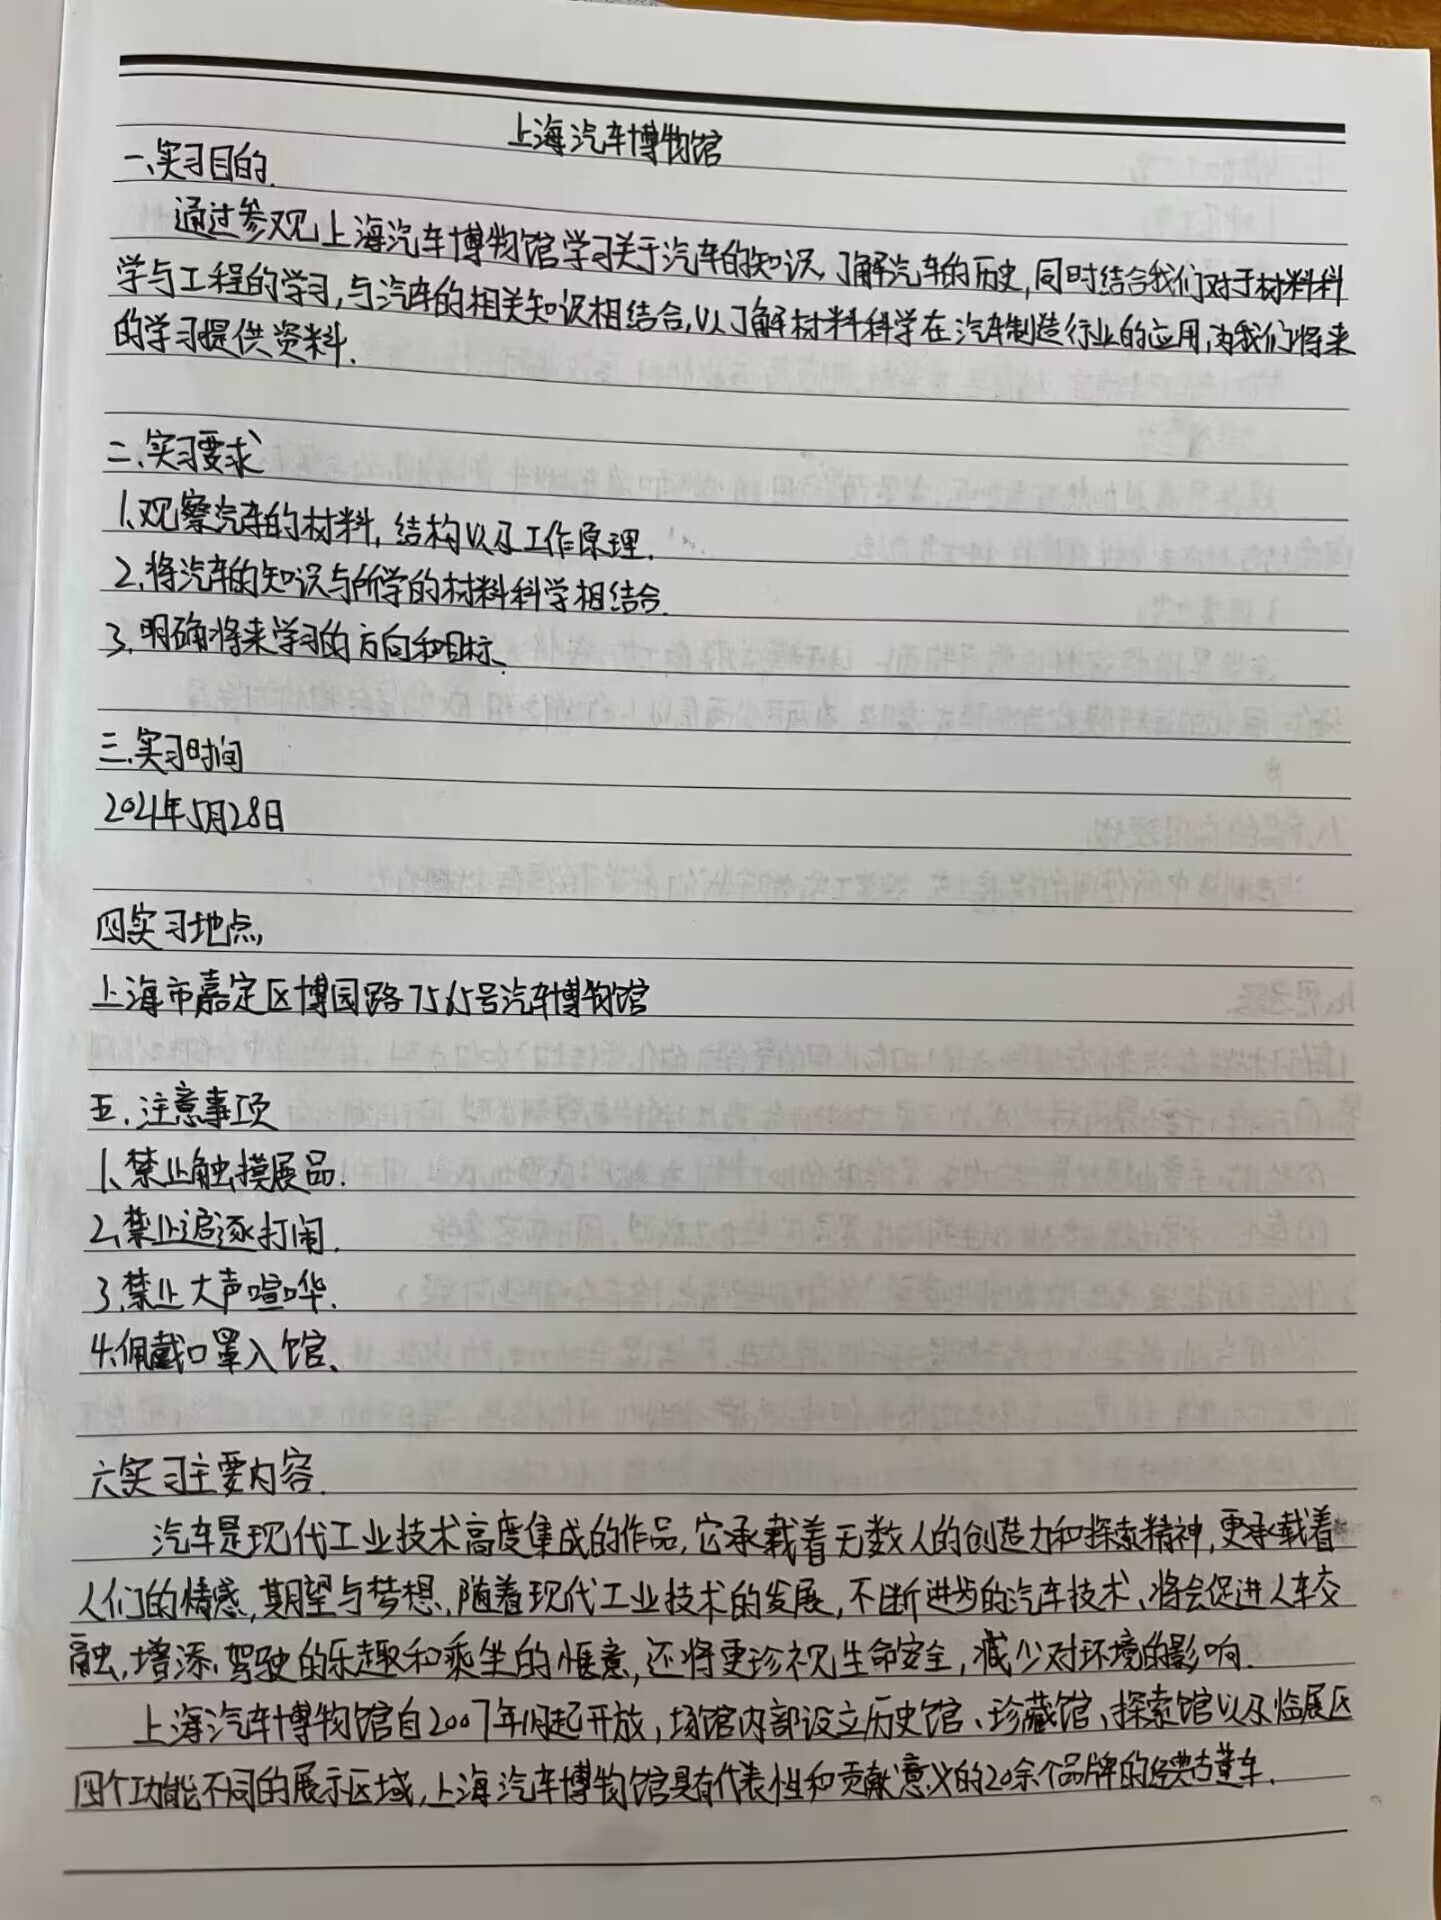 上海汽车博物馆
一、实习目的.
通过参观上海汽车博物馆学习关于汽车的知识,了解汽车的历史,同时结合我们对于材料科
学与工程的学习,与汽车的相关知识相结合,以了解材料科学在汽车制造行业的应用,为我们将来
的学习提供资料.
二.实习要求
1.观察汽车的材料,结构以及工作原理.
2.将汽车的知识与所学的材料科学相结合.
3.明确将来学习的方向和目标.
三.实习时间
2021年5月28日
四实习地点,
上海市嘉定区博园路7565号汽车博物馆
五.注意事项
1.禁止触摸展品.
2.禁止追逐打闹.
3.禁止大声喧哗.
4.佩戴口罩入馆.
六实习主要内容.
汽车是现代工业技术高度集成的作品,它承载着无数人的创造力和探索精神,更承载着
人们的情感,期望与梦想,随着现代工业技术的发展,不断进步的汽车技术、将会促进人车交
融,增添驾驶的乐趣和乘坐的惬意,还将更珍视生命安全,减少对环境的影响.
上海汽车博物馆自2007年1月起开放,场馆内部设立历史馆、珍藏馆、探索馆以及临展区
四个功能不同的展示区域,上海汽车博物馆具有代表性和贡献意义的20余个品牌的经典古董车.